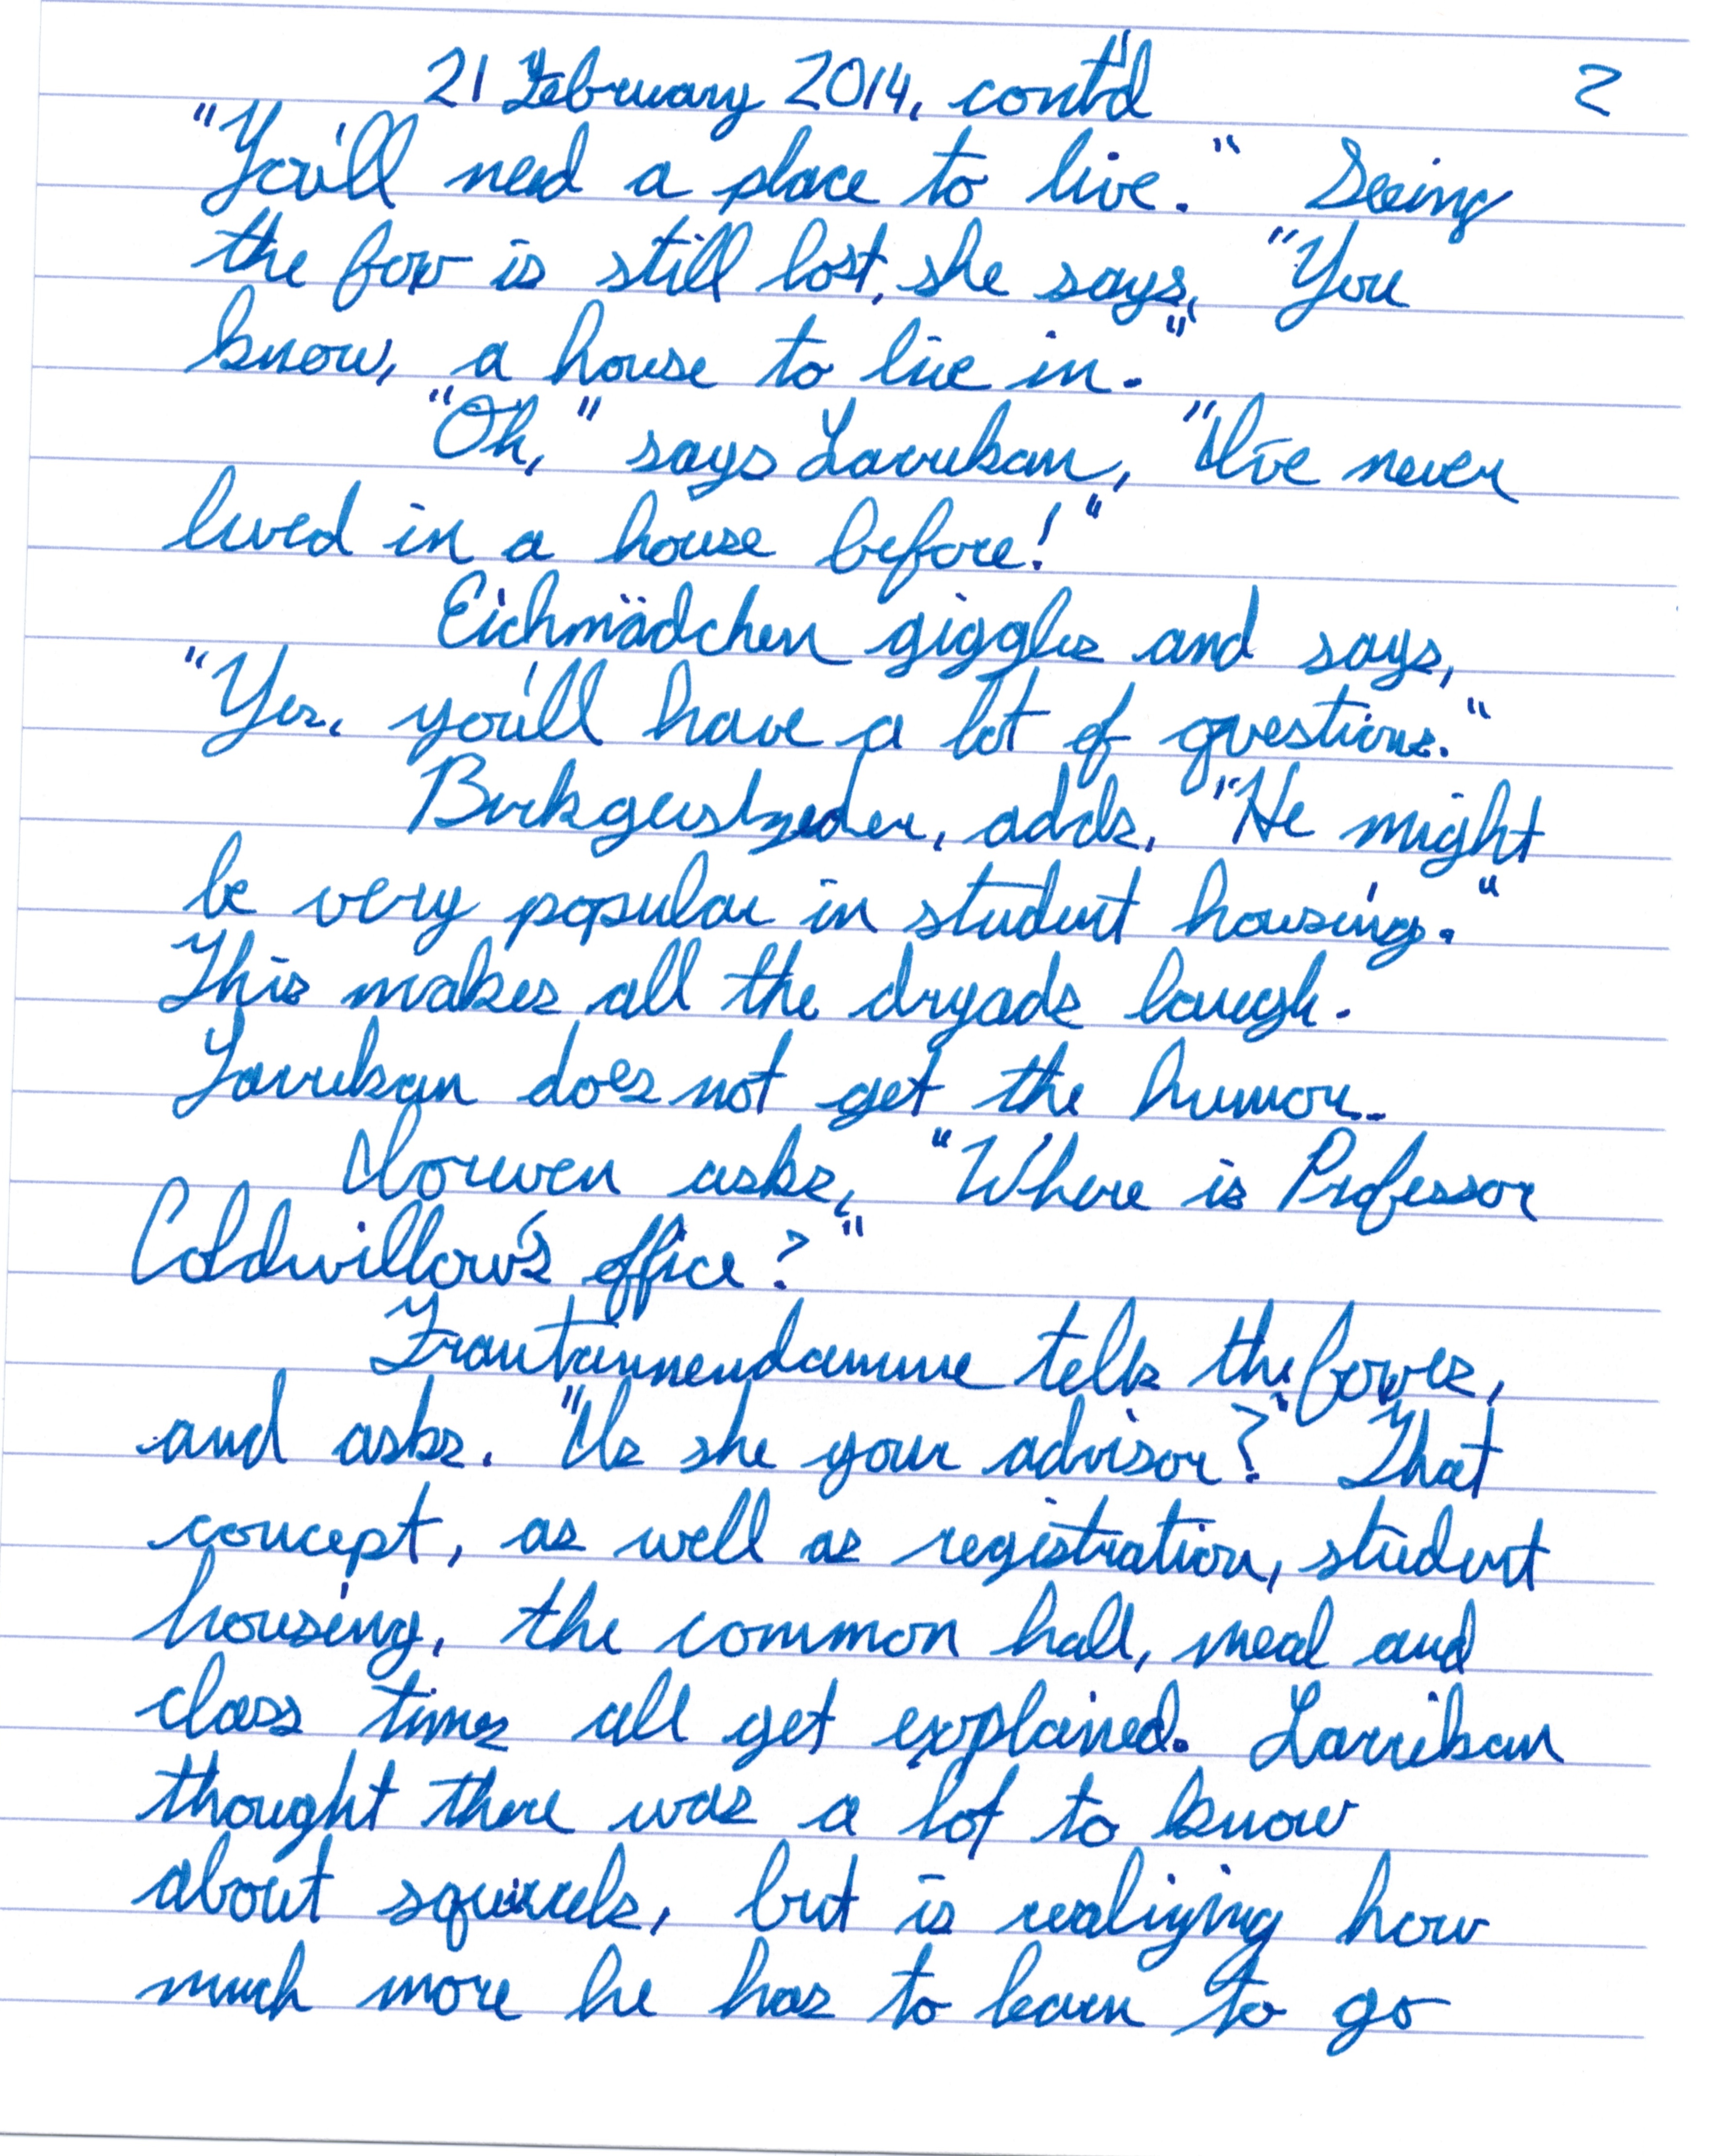 21 February 2014, cont'd 2
"You'll need a place to live." Seeing
the fox is still lost, she says, "You
know, a house to live in."
"Oh," says Larrikan, "I've never
lived in a house before!"
Eichmädchen giggles and says,
"Yes, you'll have a lot of questions."
adds, "He might
be very popular in student housing."
This makes all the dryads laugh.
Larrikan does not get the humor.
Clorwen asks, "Where is Professor
Coldwillow's office?"
Frautannendamme tells the foxes,
and asks, "Is she your advisor?" That
concept, as well as registration, student
housing, the common hall, meal and
class times all get explained. Larrikan
thought there was a lot to know
about squirrels, but is realizing how
much more he has to learn to go